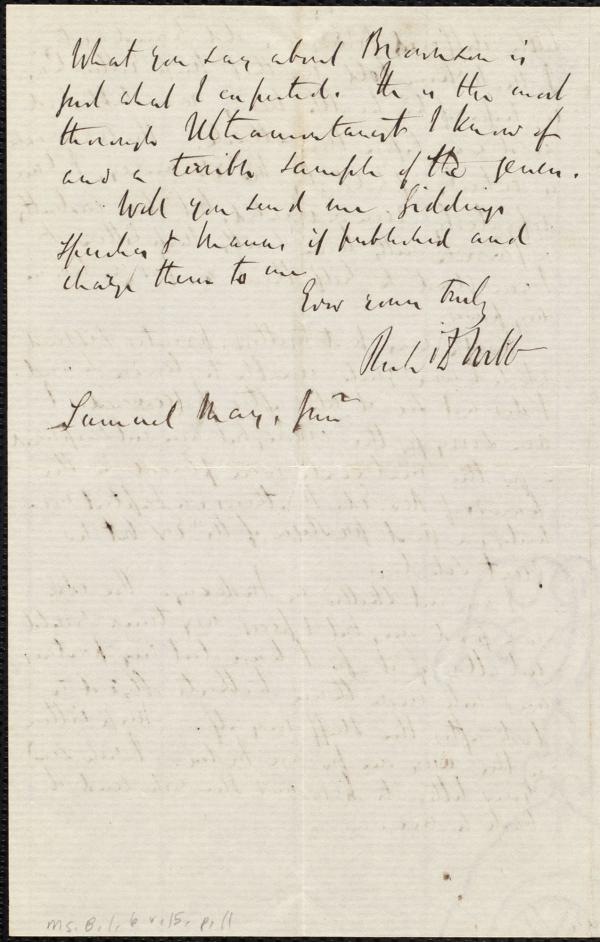 What you say about Brownson is
just what I expected. He is the most
thorough Ultramontanist I know of
and a terrible sample of the genus.
Will you send me Giddings
Speeches & Manns if published and
charge them to me
Ever yours truly
Rich. D Webb
Samuel May, Junr
Ms. B. 1. 6 v. 15, p. 11